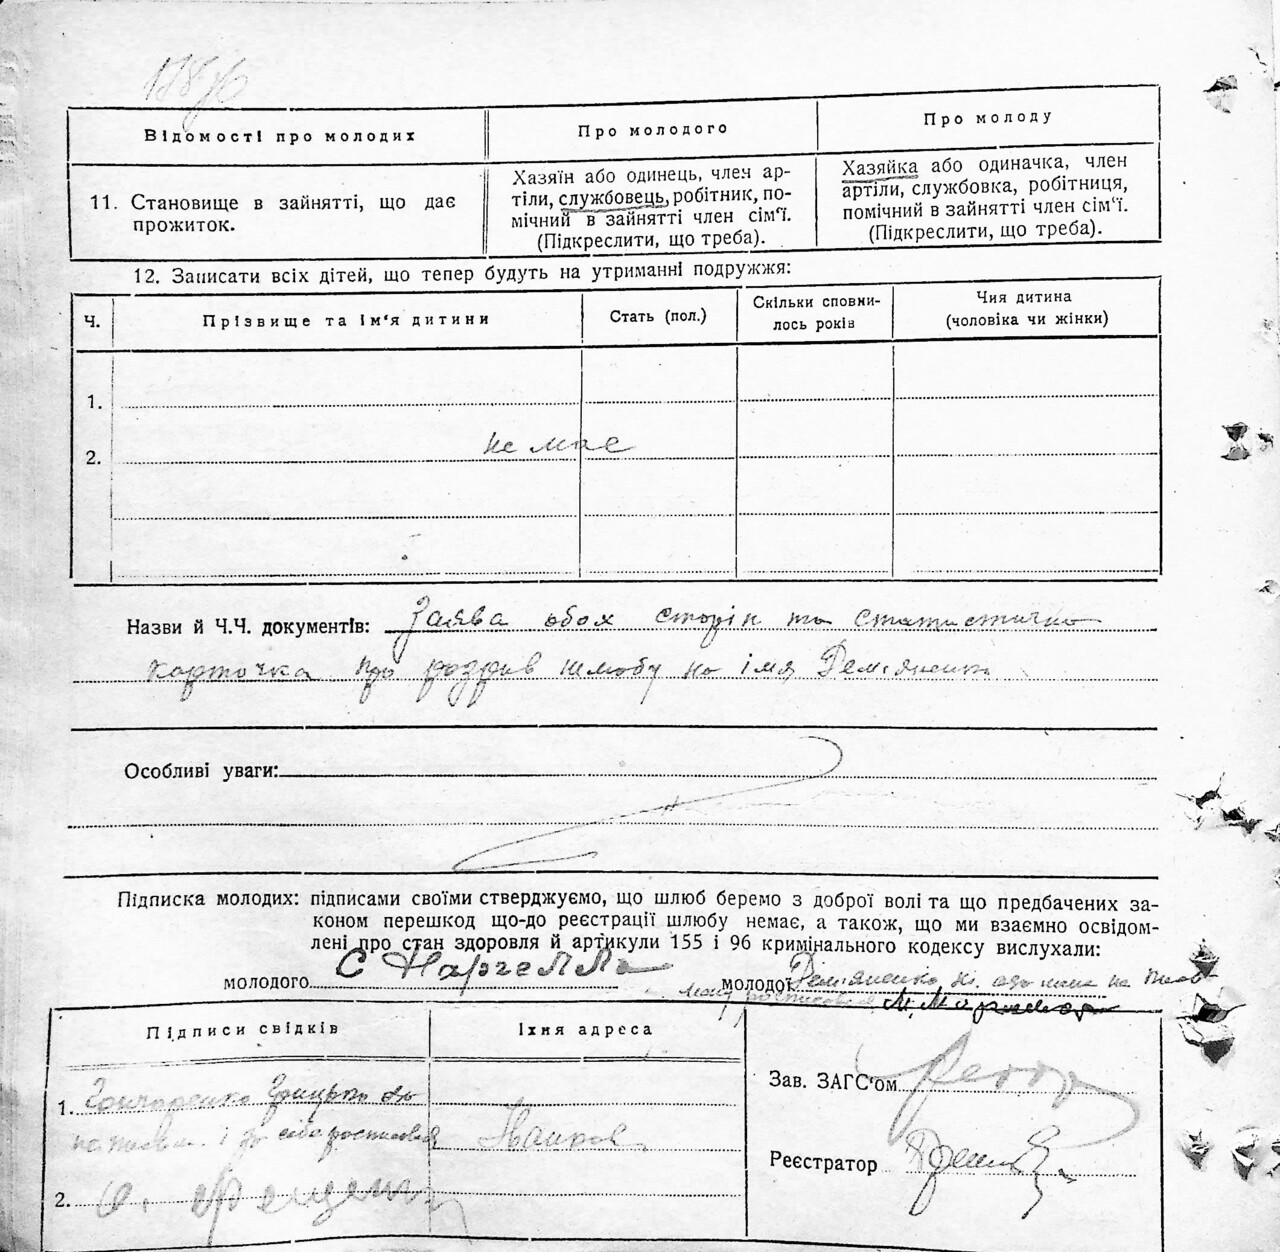 Відомості про молодих
Про молодого
Про молоду
11. Становище в зайнятті, що дає
прожиток.
Хазяїн або одинець, член ар-
тіли, службовець, робітник, по-
мічний в зайнятті член сім'ї.
(Підкреслити, що треба).
Хазяйка або одиначка, член
артіли, службовка, робітниця,
помічний в зайнятті член сім'ї.
(Підкреслити, що треба).
12. Записати всіх дітей, що тепер будуть на утриманні подружжя:
Ч.
Прізвище та ім'я дитини
Стать (пол.)
Скільки сповни-
лось років
Чия дитина
(чоловіка чи жінки)
1.
не має
2.
Назви й Ч.Ч. документів: Заява обох сторін та статистична
карточка про розрив шлюбу на імя
Особливі уваги:
Підписка молодих: підписами своїми стверджуємо, що шлюб беремо з доброї волі та що предбачених за-
коном перешкод що-до реєстрації шлюбу немає, а також, що ми взаємно освідом-
лені про стан здоровля й артикули 155 і 96 кримінального кодексу вислухали:
молодого
молодої
Підписи свідків
Їхня адреса
1. Гончаренко
2.
Зав. ЗАГС'ом
Реєстратор